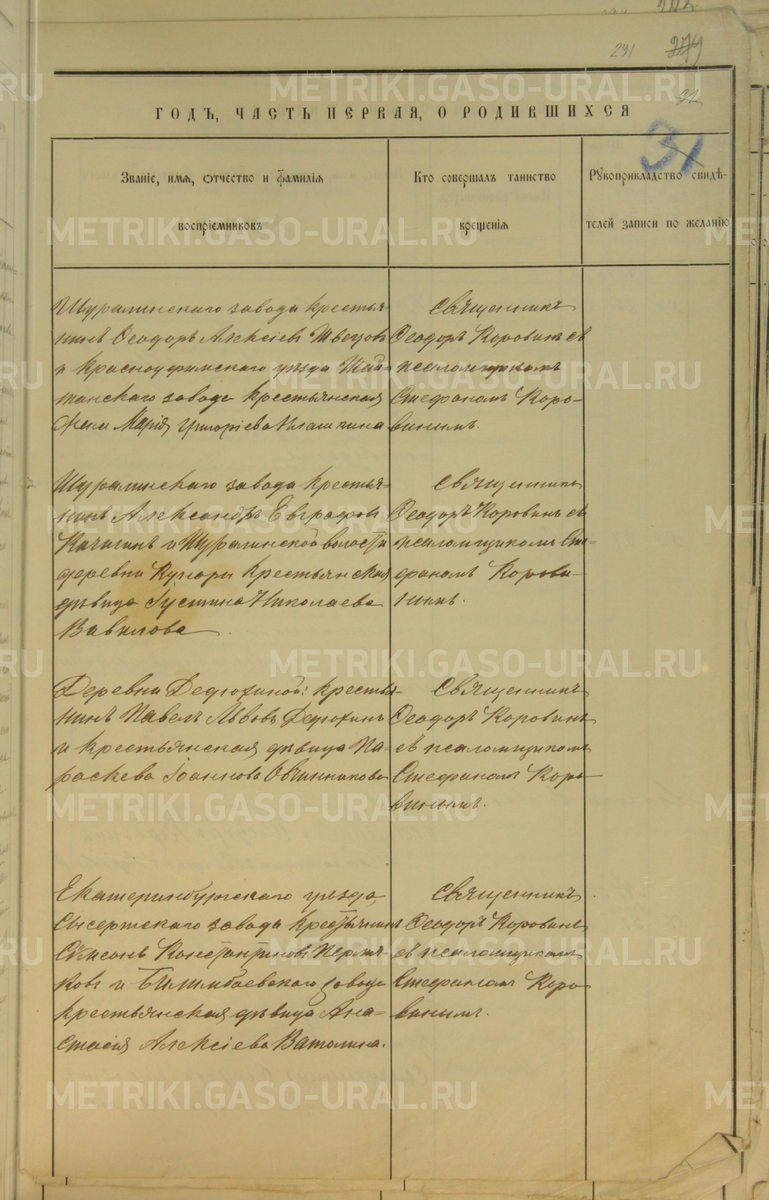 291 279
32
ГОДЪ, ЧАСТЬ ПЕРВАЯ, О РОДИВШИХСЯ
31
Званіе, имя, отчество и фамилія
воспріемниковъ
Кто совершалъ таинство
крещенія
Рукоприкладство свидѣ-
телей записи по желанію
Шуралинскаго завода крестья-
нинъ Ѳеодоръ Алексіевъ Швецовъ
и Красноуфимскаго уѣзда Шай-
танскаго завода крестьянская
жена Марія Григоріева
Священникъ
Ѳеодоръ Коровинъ съ
псаломщикомъ
Стефаномъ Коро-
винымъ.
Шуралинскаго завода крестья-
нинъ Александръ Евграфовъ
Качигинъ и Шуралинской волости
деревни Кунары крестьянская
дѣвица Іустина Николаева
Вавилова.
Священникъ
Ѳеодоръ Коровинъ съ
псаломщикомъ Сте-
фаномъ Корови-
нымъ.
Деревни Дедюхиной: крестья-
нинъ Павелъ Львовъ Дедюхинъ
и крестьянская дѣвица Па-
раскева Іоаннова Овчинникова
Священникъ
Ѳеодоръ Коровинъ
съ псаломщикомъ
Стефаномъ Коро-
винымъ.
Екатеринбургскаго уѣзда
Сысертскаго завода крестьянинъ
Симеонъ Константиновъ Пермя-
ковъ и Билимбаевскаго завода
крестьянская дѣвица Ана-
стасія Алексіева Ватолина.
Священникъ
Ѳеодоръ Коровинъ
съ псаломщикомъ
Стефаномъ Коро-
винымъ.
METRIKI.GASO-URAL.RU